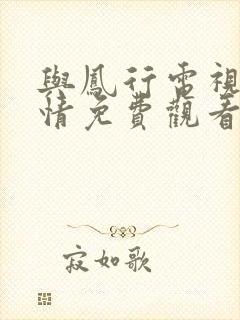 與鳳行電視
情免費觀看
寂如歌